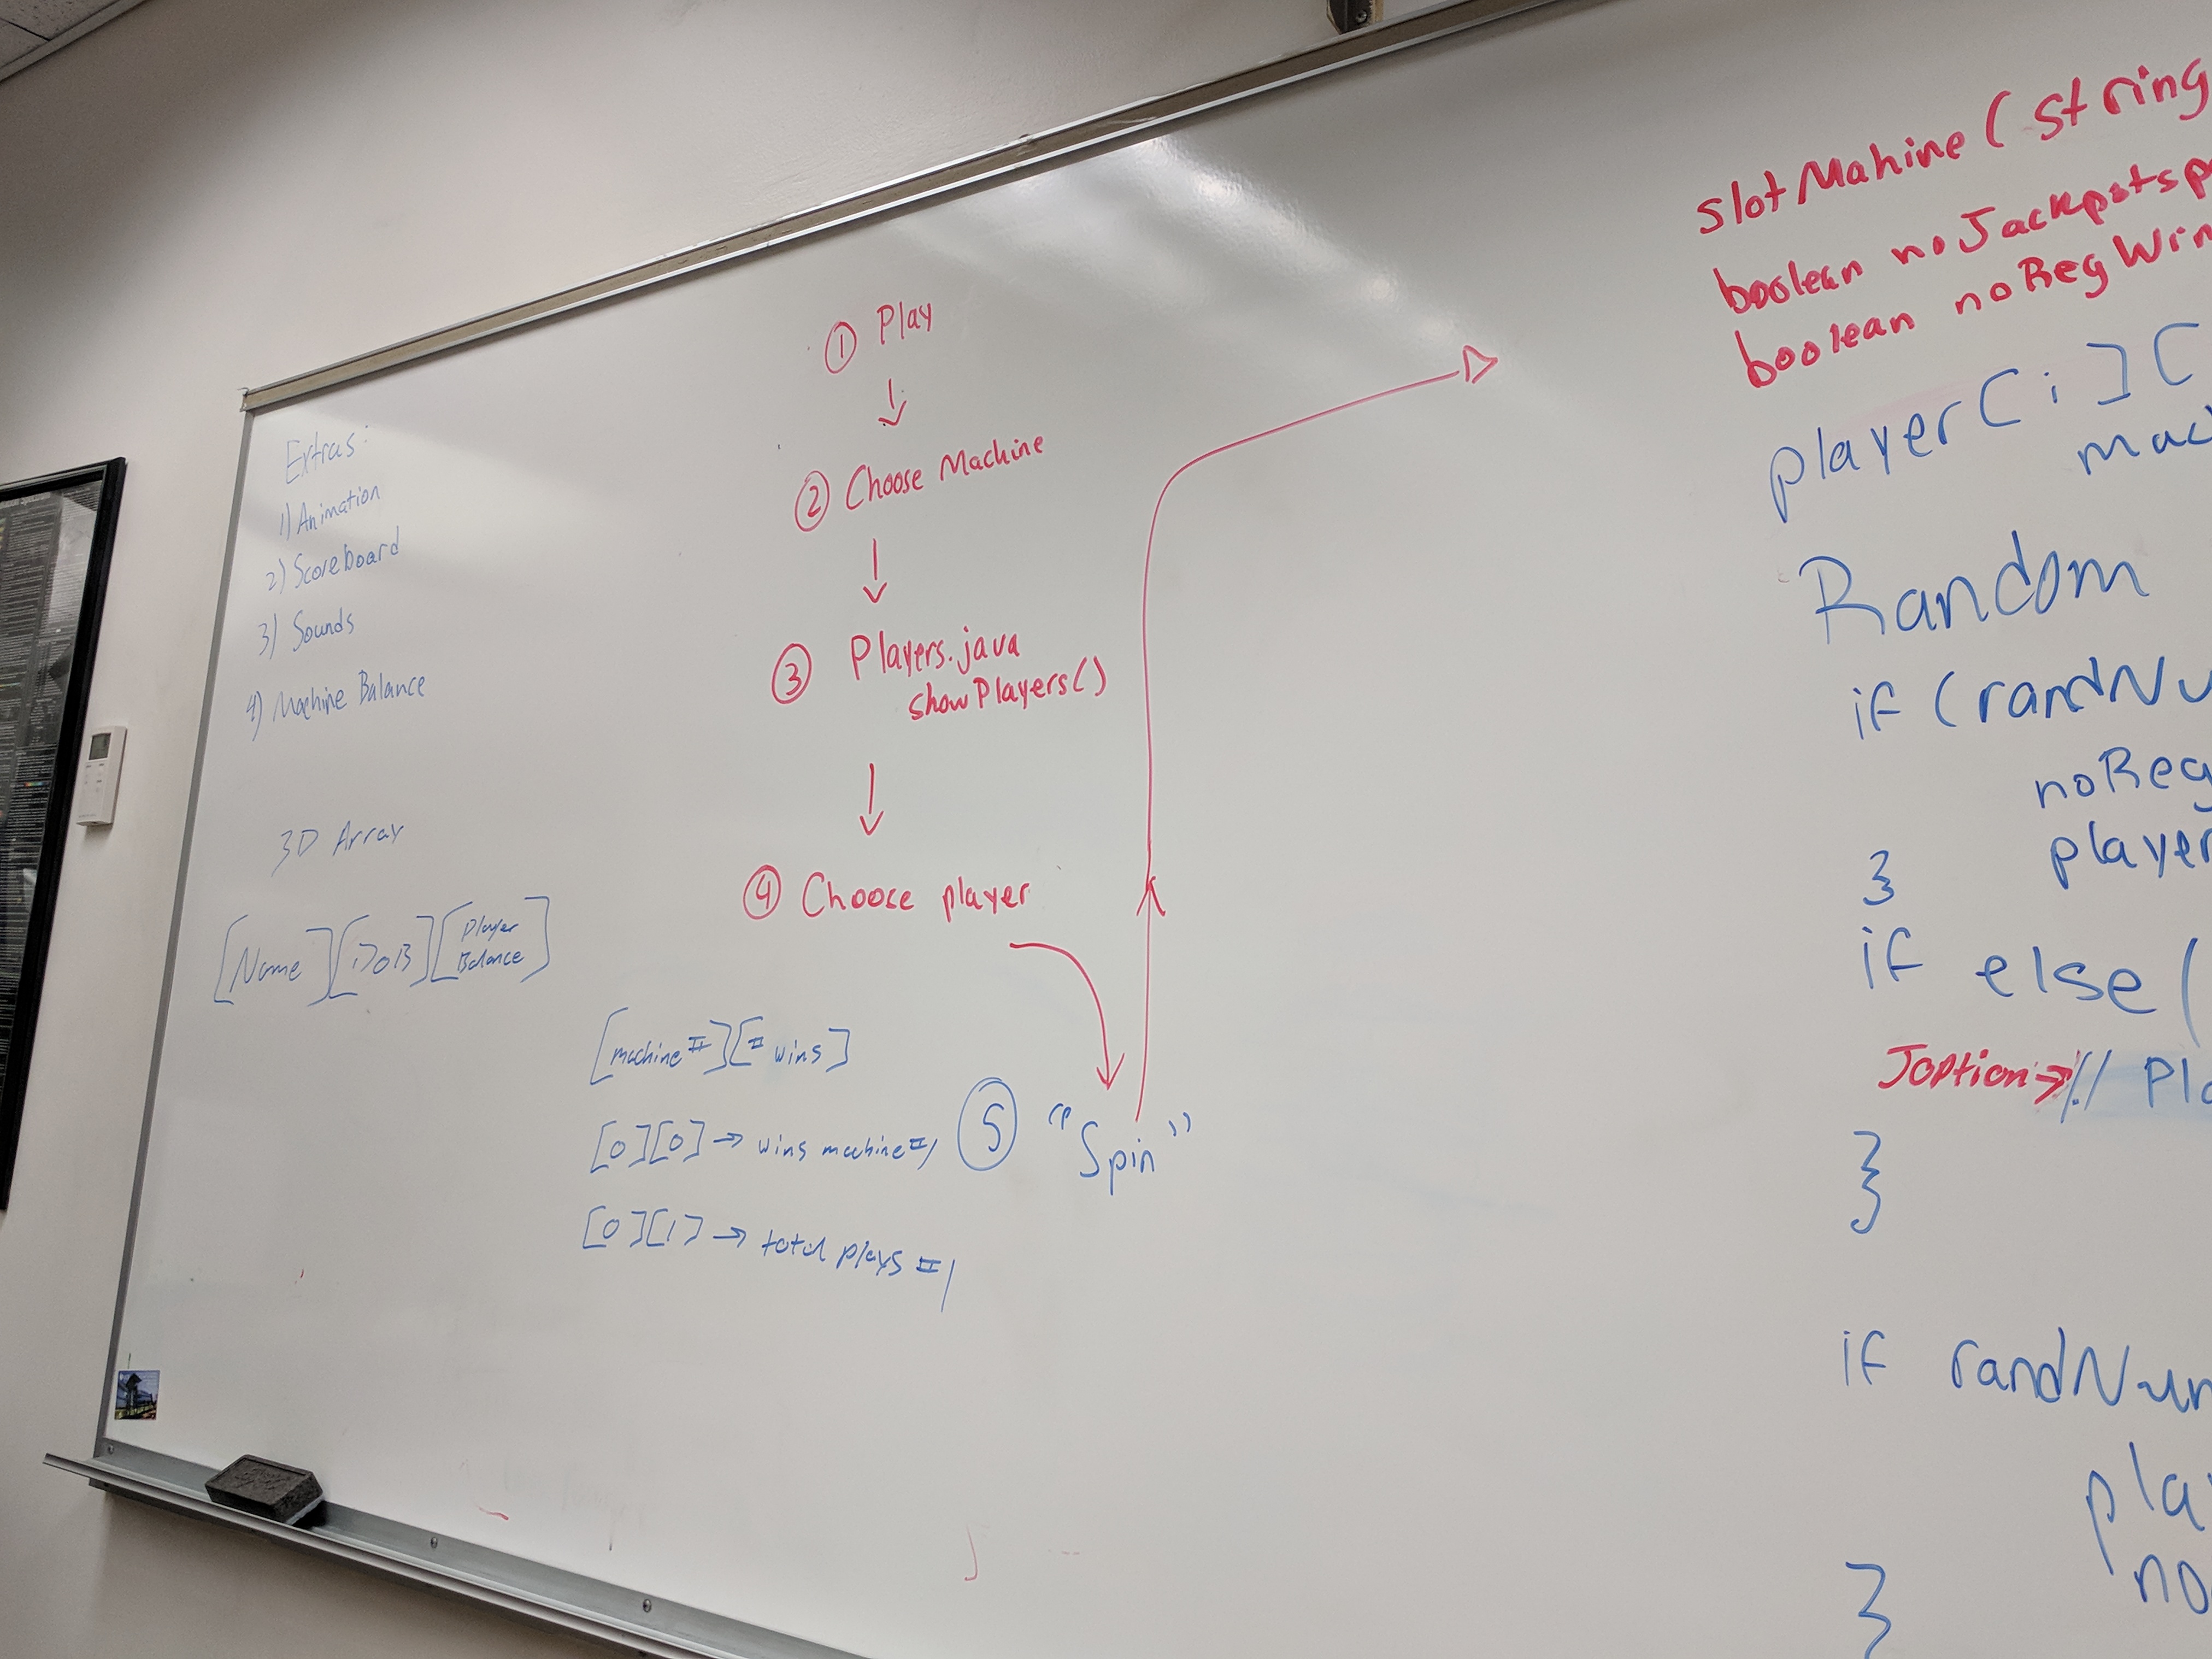 Extras:
1) Animation
2) Scoreboard
3) Sounds
4) Machine Balance
3D Array
[Name][DOB][Player Balance]
① Play
② Choose Machine
③ Players.java
showPlayers()
④ Choose player
[machine #][# wins]
[0][0] → wins machine #1
[0][1] → total plays #1
⑤ "Spin"
slotMahine(string
boolean noJackpotsp
boolean noRegWin
player[i][
mac
Random
if (randNu
noReg
player
}
if else(
Joption→// Pla
}
if randNum
play
no
}